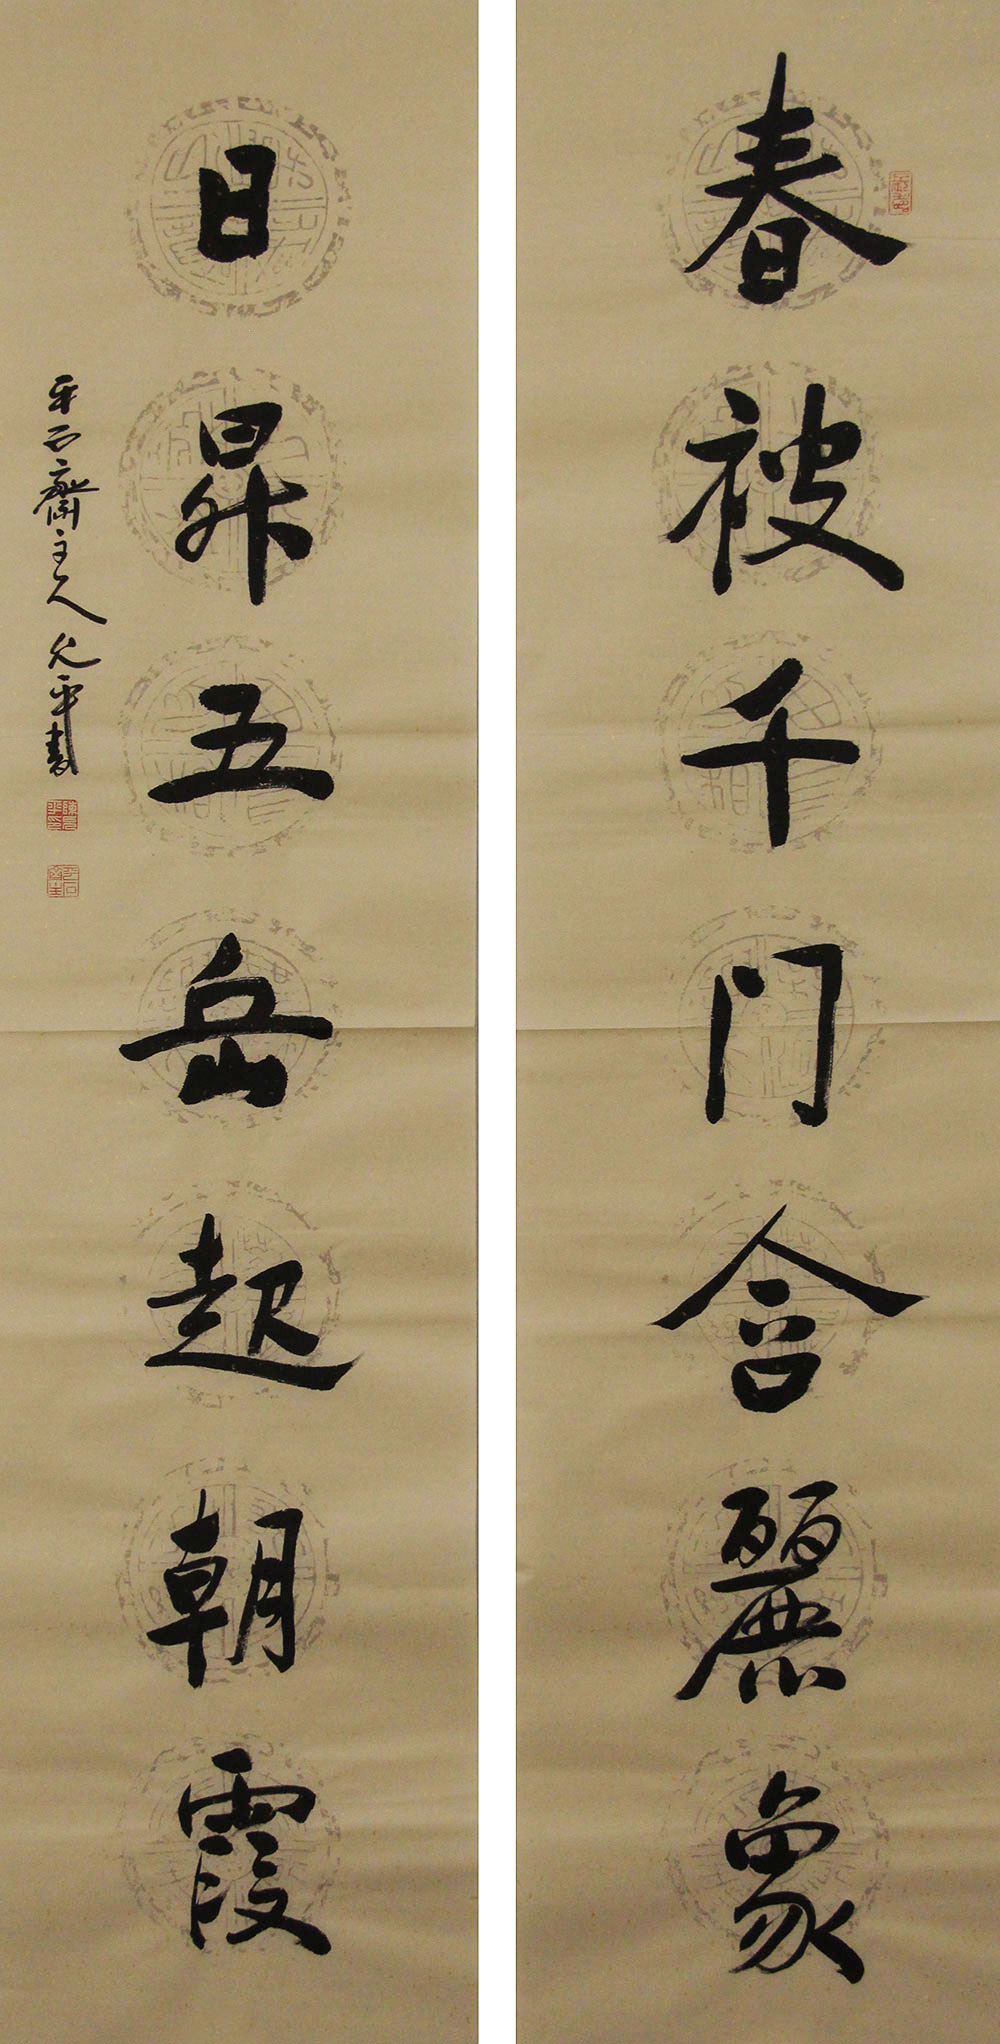 春被千门含麗象
日昇五岳起朝霞
平石齋主人允平書